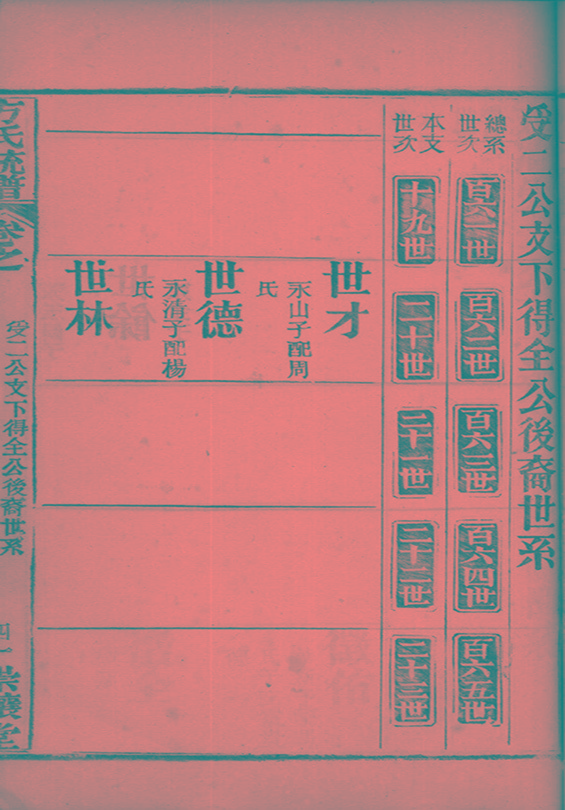 受二公支下得全公後裔世系
總系世次
百六一世
百六二世
百六三世
百六四世
百六五世
本支世次
十九世
二十世
二十一世
二十二世
二十三世
世才
永山子配周氏
世德
永清子配楊氏
世林
方氏統譜
卷之一
受二公支下得全公後裔世系
四一
崇讓堂